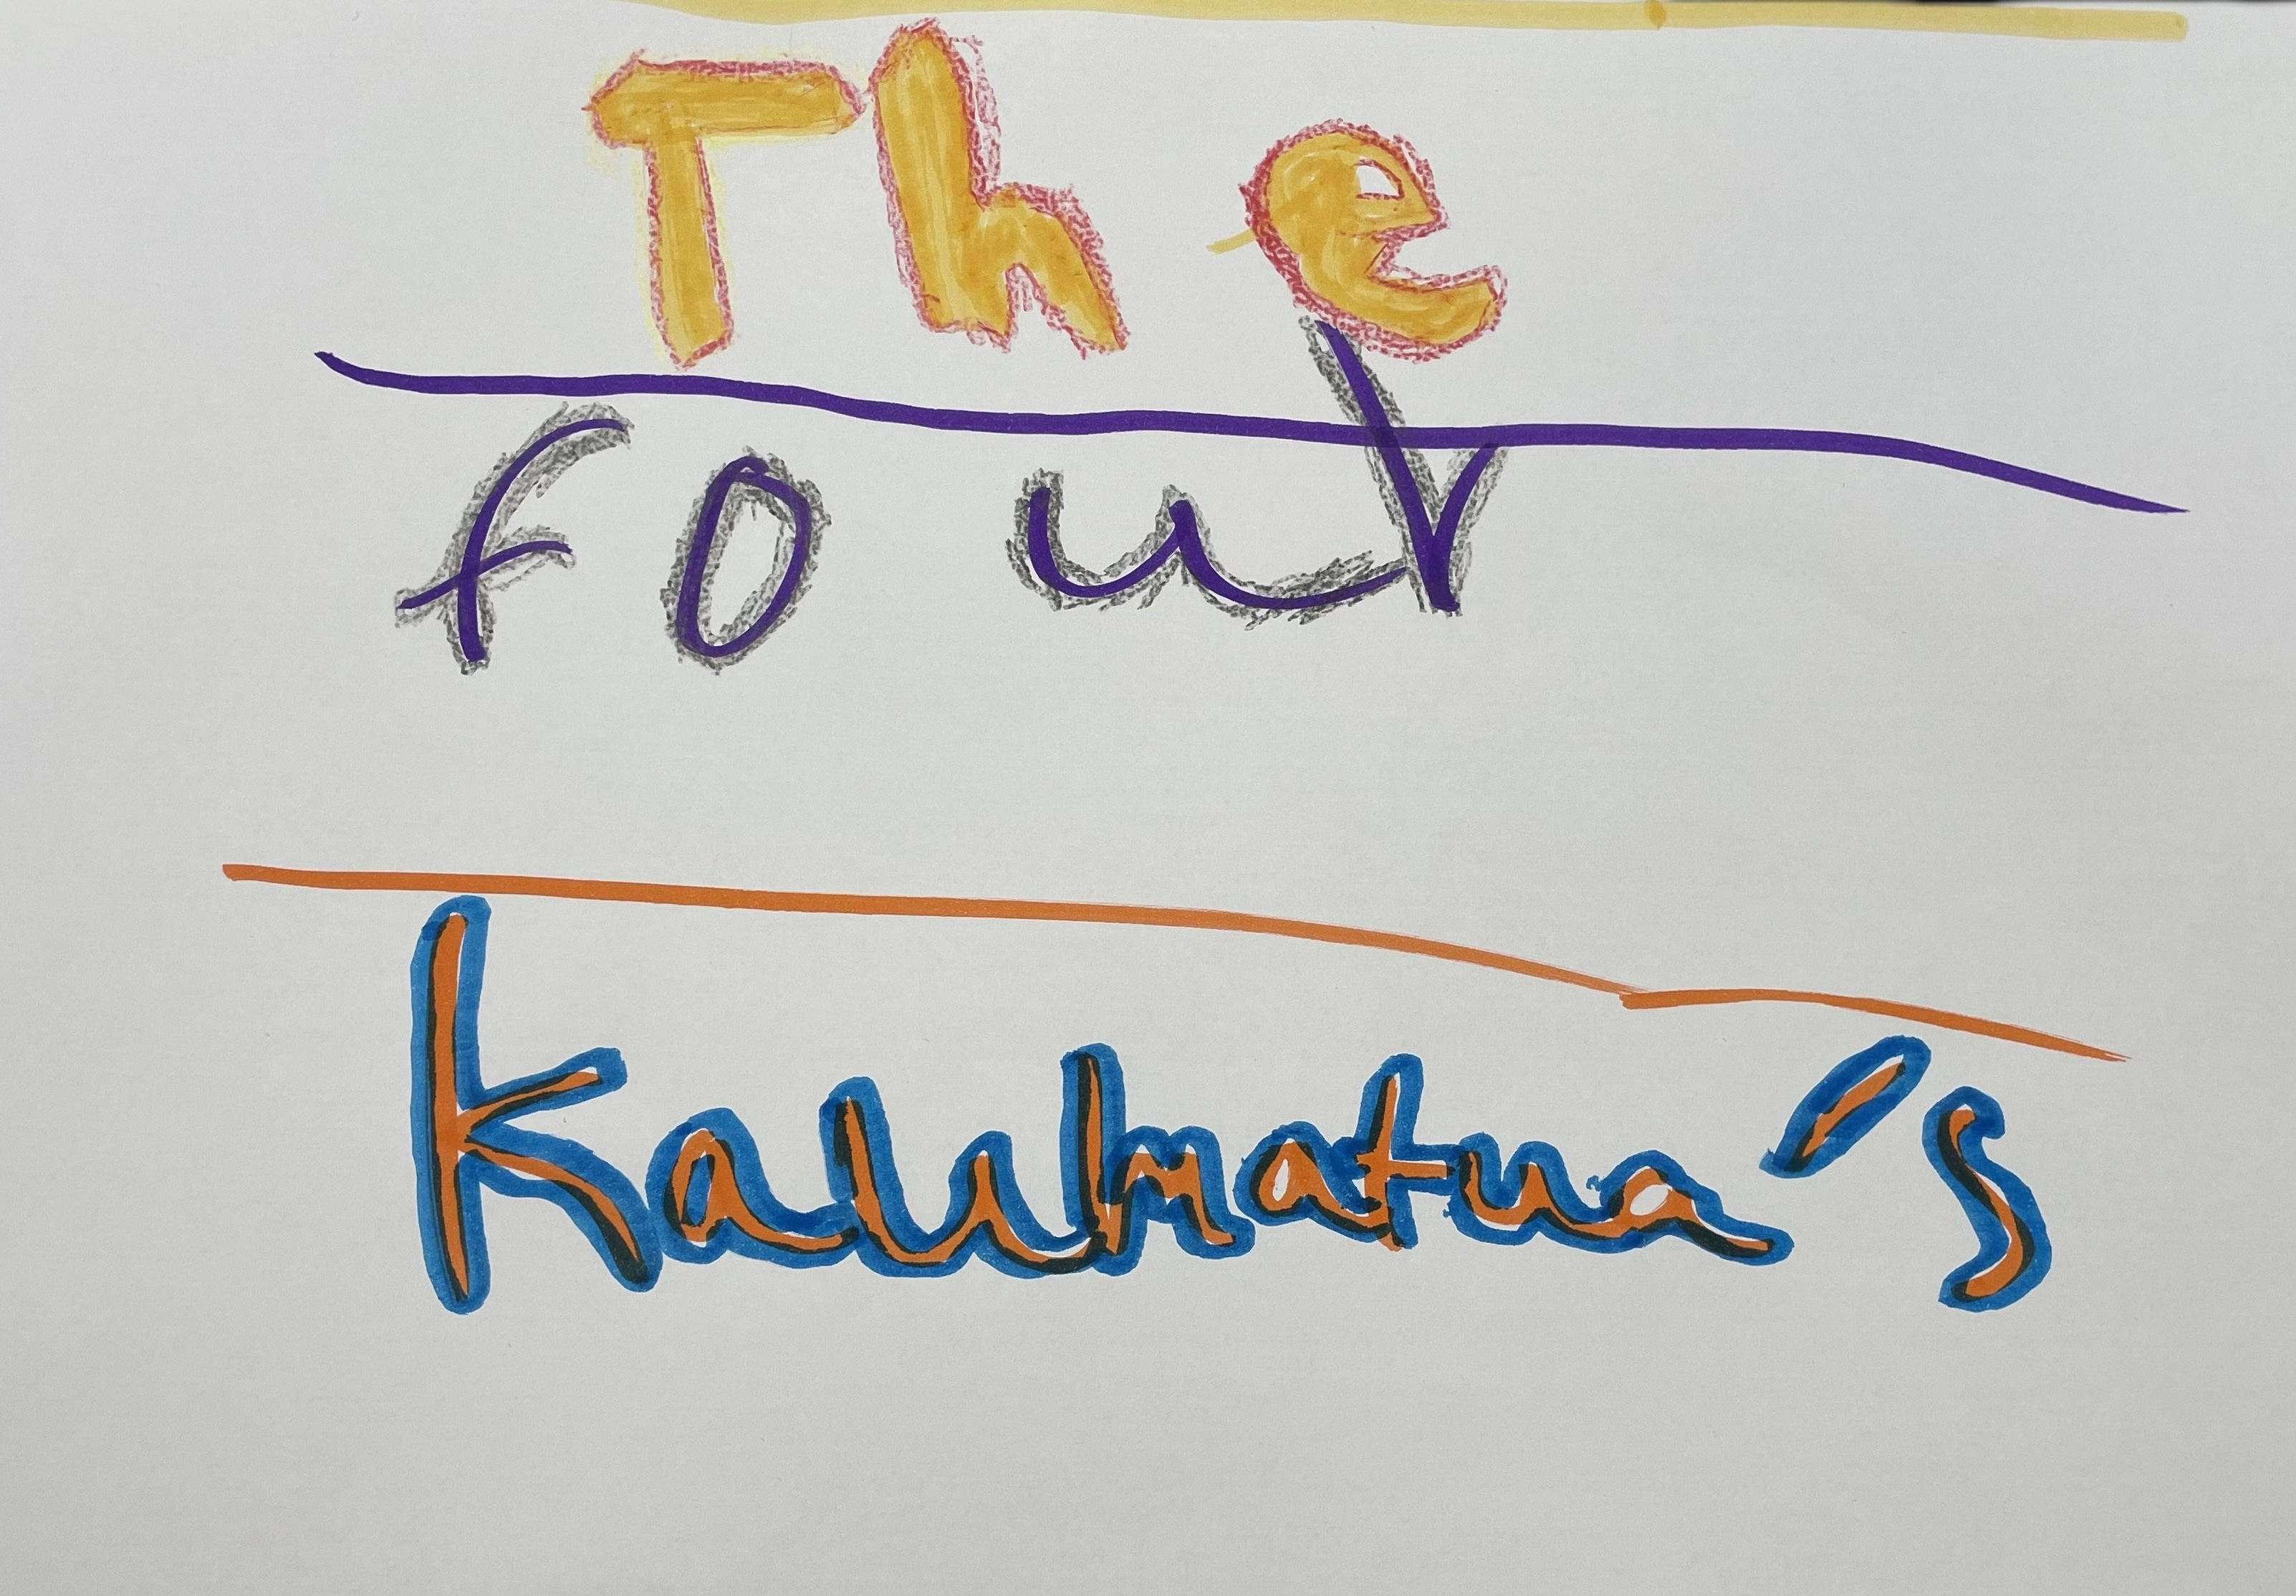 The
four
Kaumatua's